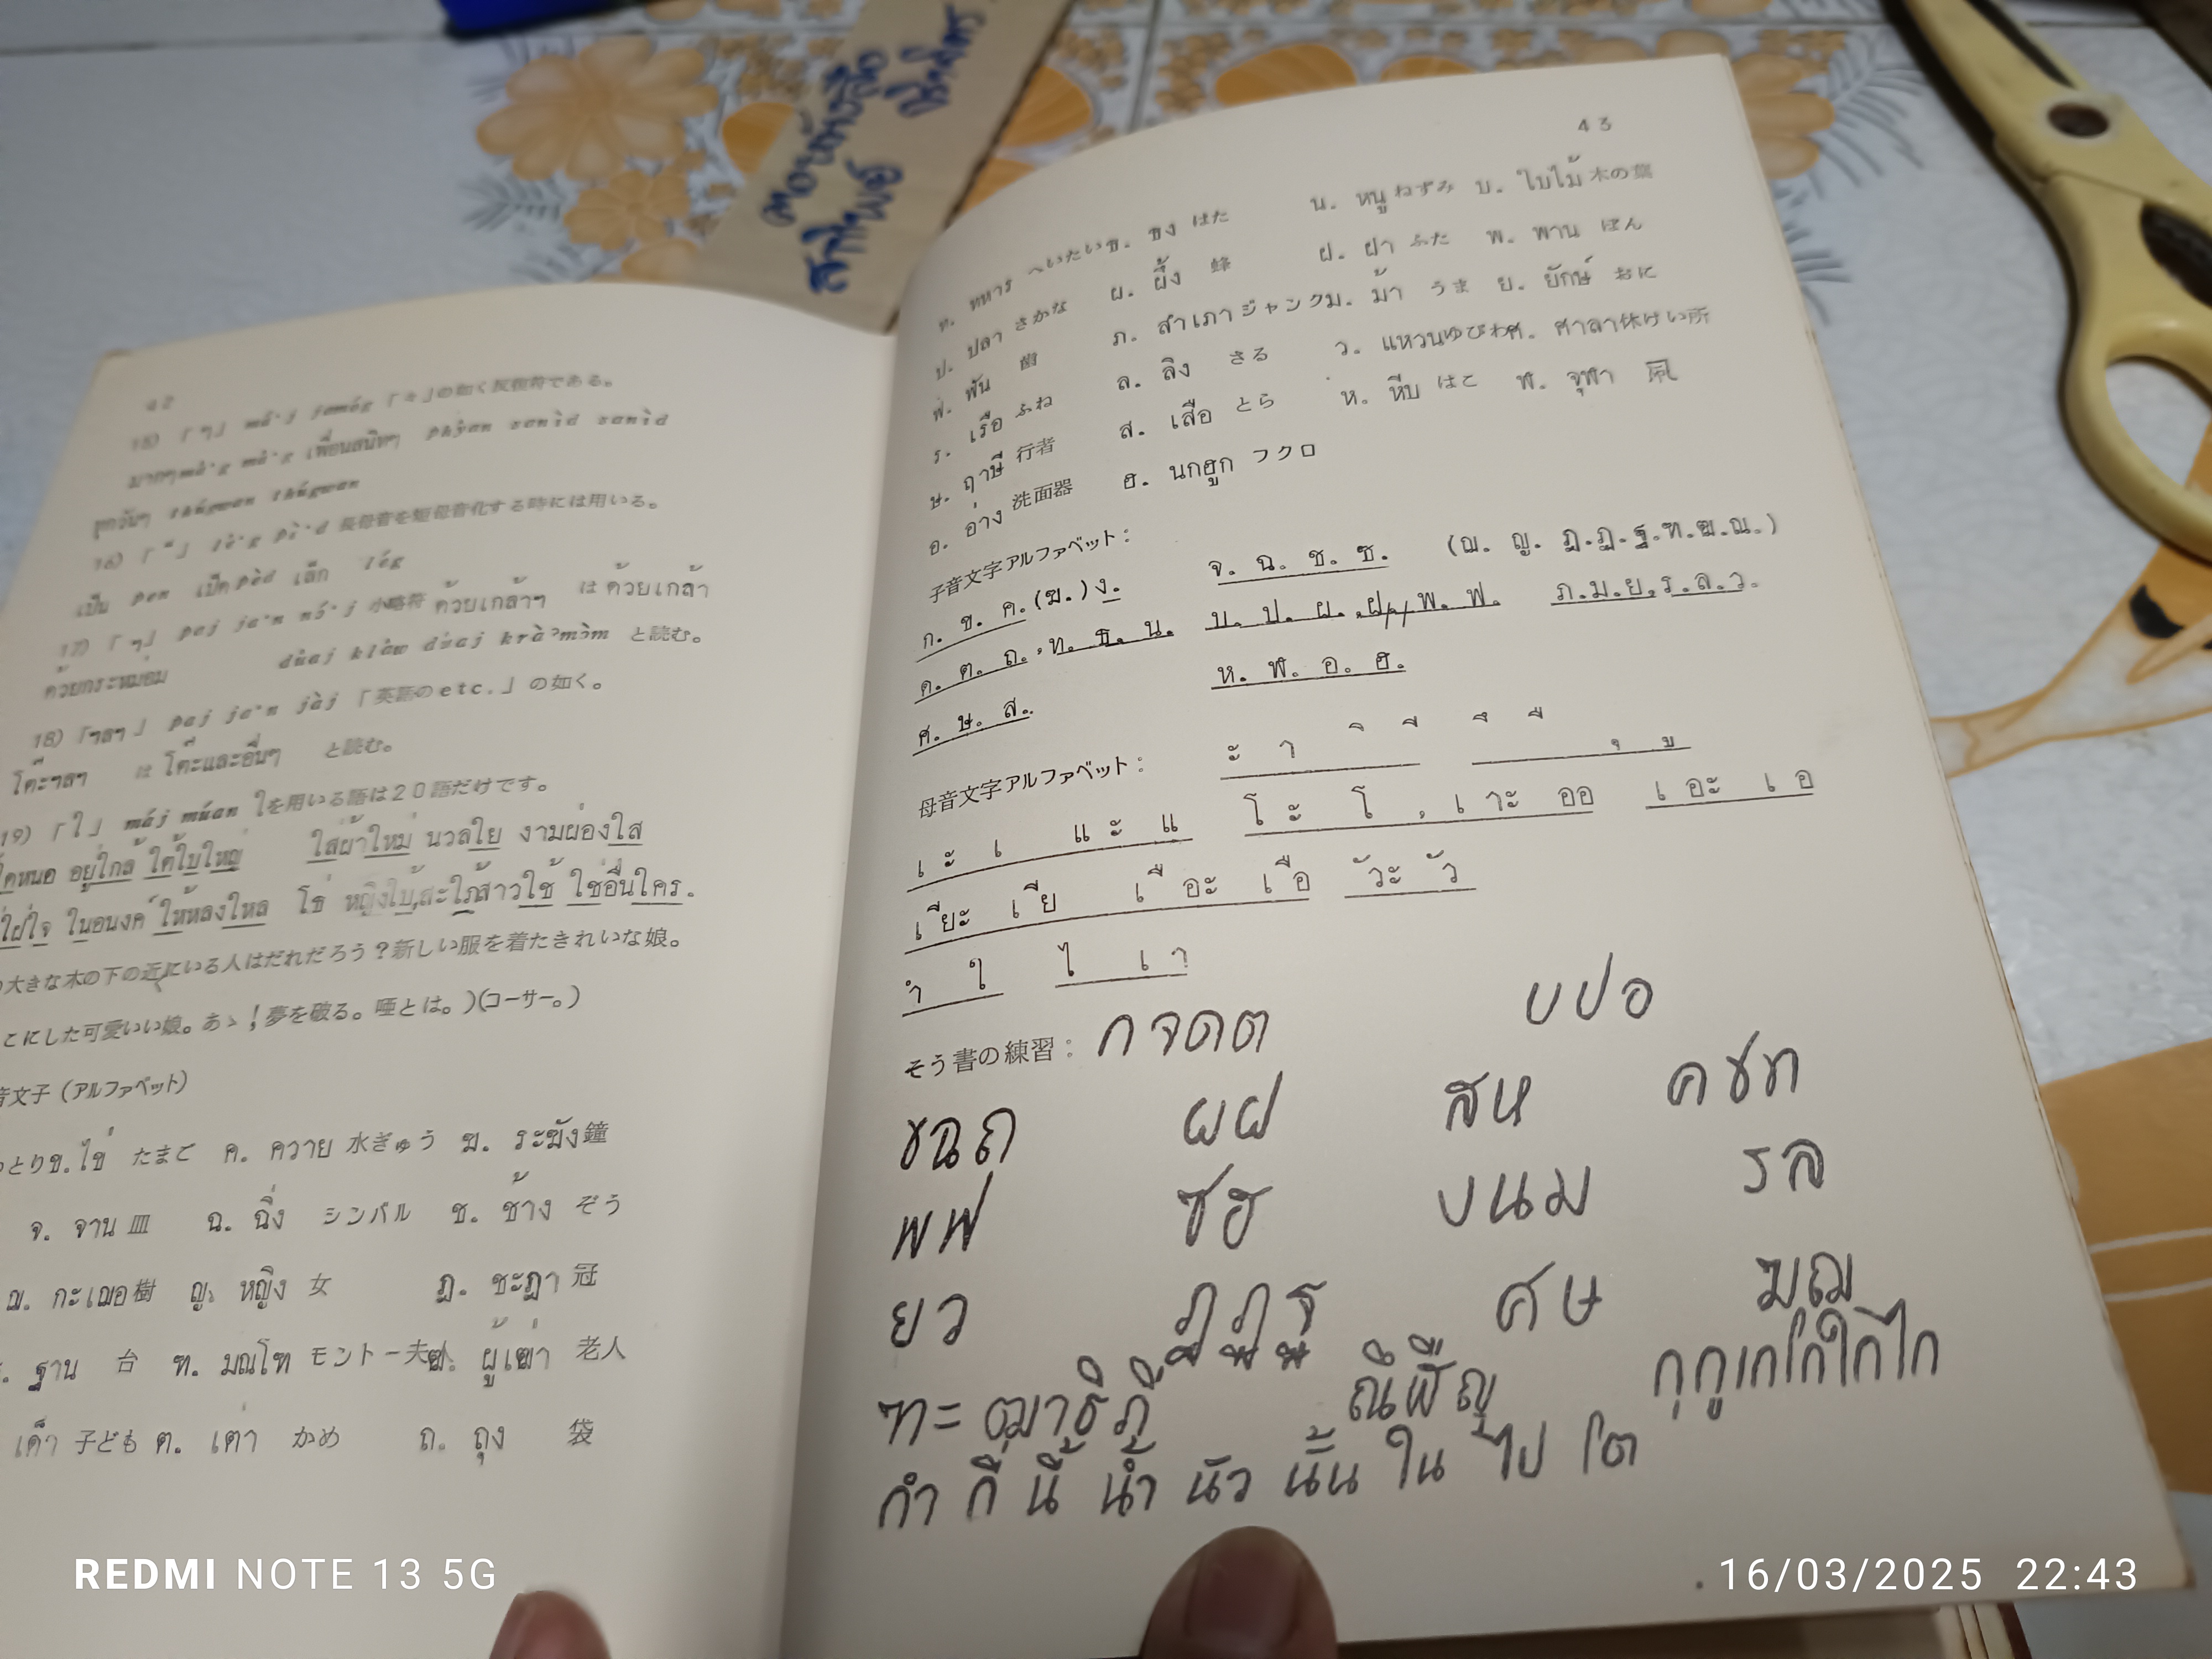 42
15) 「ๆ」 mâ·j jamóg 「々」の如く反復符である。
มากๆ mâ·g mâ·g เพื่อนสนิทๆ phŷan sanìd sanìd
ทุกวันๆ thúgwan thúgwan
16) 「 ็」 lè·g pè·d 長母音を短母音化する時には用いる。
เป็น pen เป็ด pèd เล็ก lég
17) 「ฯ」 paj ja·n nó·j 小略符 ด้วยเกล้าฯ は ด้วยเกล้า
ด้วยกระหม่อม dûaj klâw dûaj kràʼmòm と読む。
18) 「ฯลฯ」 paj ja·n jàj 「英語のetc.」の如く。
โต๊ะฯลฯ は โต๊ะและอื่นๆ と読む。
19) 「ใ」 máj múan ใを用いる語は20語だけです。
หนอ อยู่ใกล้ ใต้ใบใหญ่ ใส่ผ้าใหม่ นวลใย งามผ่องใส
ใฝ่ใจ ในอนงค์ ให้หลงใหล โธ่ หญิงใบ้, สะใภ้สาวใช้ ใช่อื่นใคร.
大きな木の下の近にいる人はだれだろう?新しい服を着たきれいな娘。
こにした可愛いい娘。あゝ!夢を破る。唖とは。)(コーサー。)
音文子(アルファベット)
とり ข. ไข่ たまご ค. ควาย 水ぎゅう ฆ. ระฆัง 鐘
จ. จาน 皿 ฉ. ฉิ่ง シンバル ช. ช้าง ぞう
ฌ. กะเฌอ 樹 ญ. หญิง 女 ฎ. ชะฎา 冠
ฐาน 台 ฑ. มณโฑ モントー夫人 ฒ. ผู้เฒ่า 老人
เด็ก 子ども ต. เต่า かめ ถ. ถุง 袋
43
ท. ทหาร へいたい ธ. ธง はた น. หนู ねずみ บ. ใบไม้ 木の葉
ป. ปลา さかな ผ. ผึ้ง 蜂 ฝ. ฝา ふた พ. พาน ぼん
ฟ. ฟัน 歯 ภ. สำเภา ジャンク ม. ม้า うま ย. ยักษ์ おに
ร. เรือ ふね ล. ลิง さる ว. แหวน ゆびわ ศ. ศาลา 休けい所
ษ. ฤาษี 行者 ส. เสือ とら ห. หีบ はこ ฬ. จุฬา 凧
อ. อ่าง 洗面器 ฮ. นกฮูก フクロ
子音文字アルファベット:
ก. ข. ค. (ฆ.) ง. จ. ฉ. ช. ซ. (ฌ. ญ. ฎ. ฏ. ฐ. ฑ. ฒ. ณ.)
ด. ต. ถ. ท. ธ. น. บ. ป. ผ. ฝ. พ. ฟ. ภ. ม. ย. ร. ล. ว.
ศ. ษ. ส. ห. ฬ. อ. ฮ.
母音文字アルファベット: ะ า ิ ี ึ ื ุ ู
เ ะ เ แ ะ แ โ ะ โ , เ าะ ออ เ อะ เ อ
เ ียะ เ ีย เ ือะ เ ือ ัวะ ัว
ำ ใ ไ เ า
そう書の練習: ก จ ด ต บ ป อ
ข ฉ ถ ผ ฝ ส ห ค ช ท
พ ฟ ซ ฮ ง น ม ร ล
ย ว ฎ ฏ ฐ ศ ษ ฆ ฌ
ฑ ะ ฒ า ธิ ภี ณึ ฬื ญ กุ กู เก โก ใก ไก
กำ กี่ นี้ น้ำ นัว นั้น ใน ไป โต
REDMI NOTE 13 5G
16/03/2025 22:43